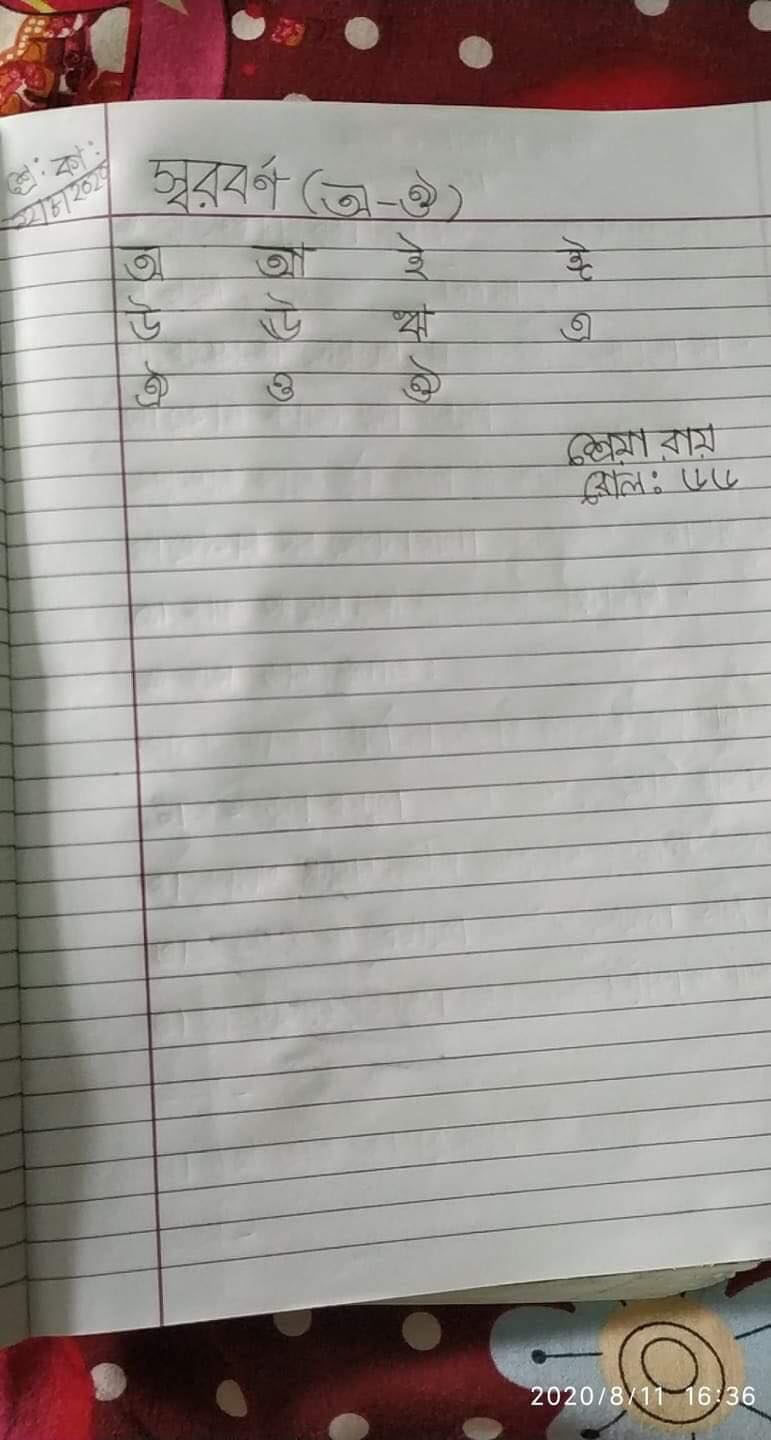 শ্রে: কা:
১১/৮/২০২০
স্বরবর্ণ (অ-ঔ)
অ আ ই ঈ
উ ঊ ঋ এ
ঐ ও ঔ
শ্রেয়া রায়
রোল: ৬৬
2020/8/11 16:36